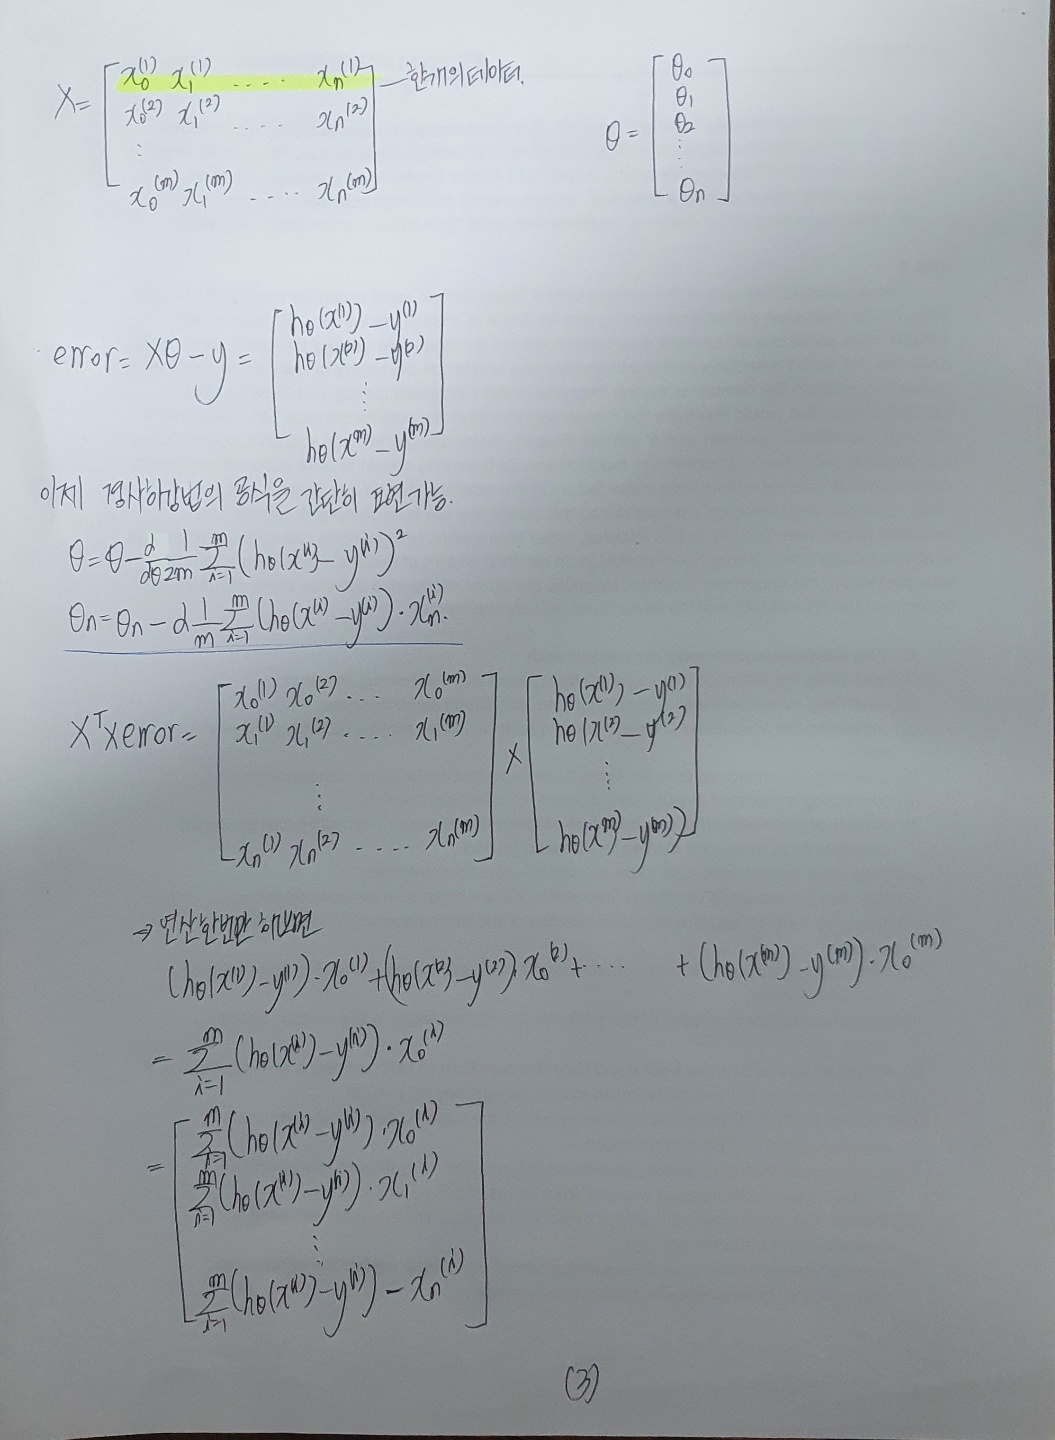 X = [ x₀⁽¹⁾ x₁⁽¹⁾ .... xₙ⁽¹⁾ — 한개의 데이터.
x₀⁽²⁾ x₁⁽²⁾ .... xₙ⁽²⁾
⋮
x₀⁽ᵐ⁾ x₁⁽ᵐ⁾ .... xₙ⁽ᵐ⁾ ]
θ = [ θ₀
θ₁
θ₂
⋮
θn ]
error = Xθ - y = [ hθ(x⁽¹⁾) - y⁽¹⁾
hθ(x⁽²⁾) - y⁽²⁾
⋮
hθ(x⁽ᵐ⁾ - y⁽ᵐ⁾ ]
이제 경사하강법의 공식을 간단히 표현가능.
θ = θ - d/dθ 1/2m Σᵢ₌₁ᵐ (hθ(x⁽ⁱ⁾ - y⁽ⁱ⁾)²
θn = θn - α 1/m Σᵢ₌₁ᵐ (hθ(x⁽ⁱ⁾ - y⁽ⁱ⁾) · xₙ⁽ⁱ⁾.
Xᵀ x error = [ x₀⁽¹⁾ x₀⁽²⁾ ... x₀⁽ᵐ⁾
x₁⁽¹⁾ x₁⁽²⁾ .... x₁⁽ᵐ⁾
⋮
xₙ⁽¹⁾ xₙ⁽²⁾ .... xₙ⁽ᵐ⁾ ]
x [ hθ(x⁽¹⁾) - y⁽¹⁾
hθ(x⁽²⁾ - y⁽²⁾
⋮
hθ(x⁽ᵐ⁾) - y⁽ᵐ⁾) ]
→ 연산 한번만 해보면
(hθ(x⁽¹⁾) - y⁽¹⁾) · x₀⁽¹⁾ + (hθ(x⁽²⁾) - y⁽²⁾) · x₀⁽²⁾ + .... + (hθ(x⁽ᵐ⁾) - y⁽ᵐ⁾) · x₀⁽ᵐ⁾
= Σᵢ₌₁ᵐ (hθ(x⁽ⁱ⁾) - y⁽ⁱ⁾) · x₀⁽ⁱ⁾
= [ Σᵢ₌₁ᵐ (hθ(x⁽ⁱ⁾ - y⁽ⁱ⁾) · x₀⁽ⁱ⁾
Σᵢ₌₁ᵐ (hθ(x⁽ⁱ⁾) - y⁽ⁱ⁾) · x₁⁽ⁱ⁾
⋮
Σᵢ₌₁ᵐ (hθ(x⁽ⁱ⁾) - y⁽ⁱ⁾) - xₙ⁽ⁱ⁾ ]
(3)